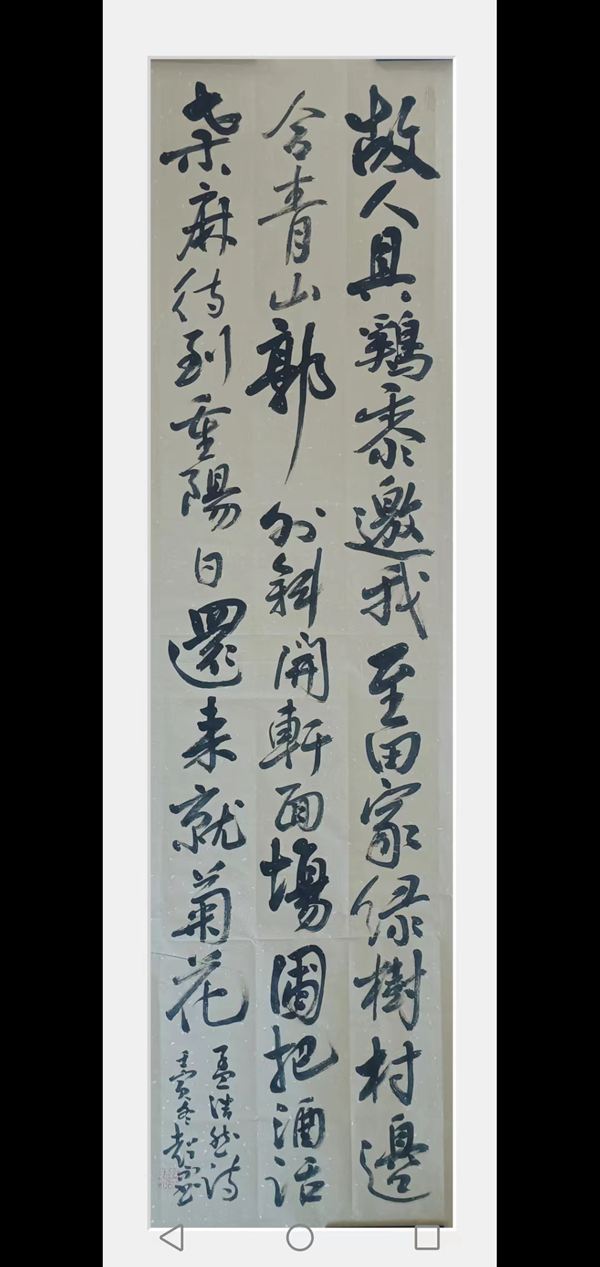 故人具鷄黍邀我至田家绿樹村邊
合青山郭外斜開軒面場圃把酒话
桑麻待到重陽日還来就菊花
孟浩然诗